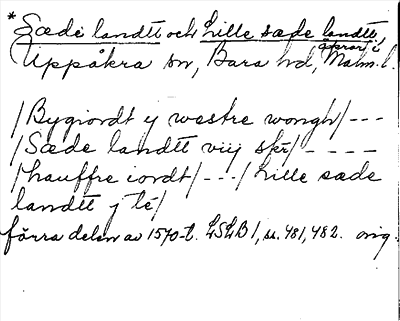 * Sæde landtt och Lille sæde landtt,
Uppåkra sn, Bara hd, Malm. l.
/Bygiordt y westre wongh/---
/Sæde landtt viij skr/----
/hauffre iordt/---/Lille sæde
landtt y té/
förra delen av 1570-t. LSLB 1, ss. 481, 482. orig.